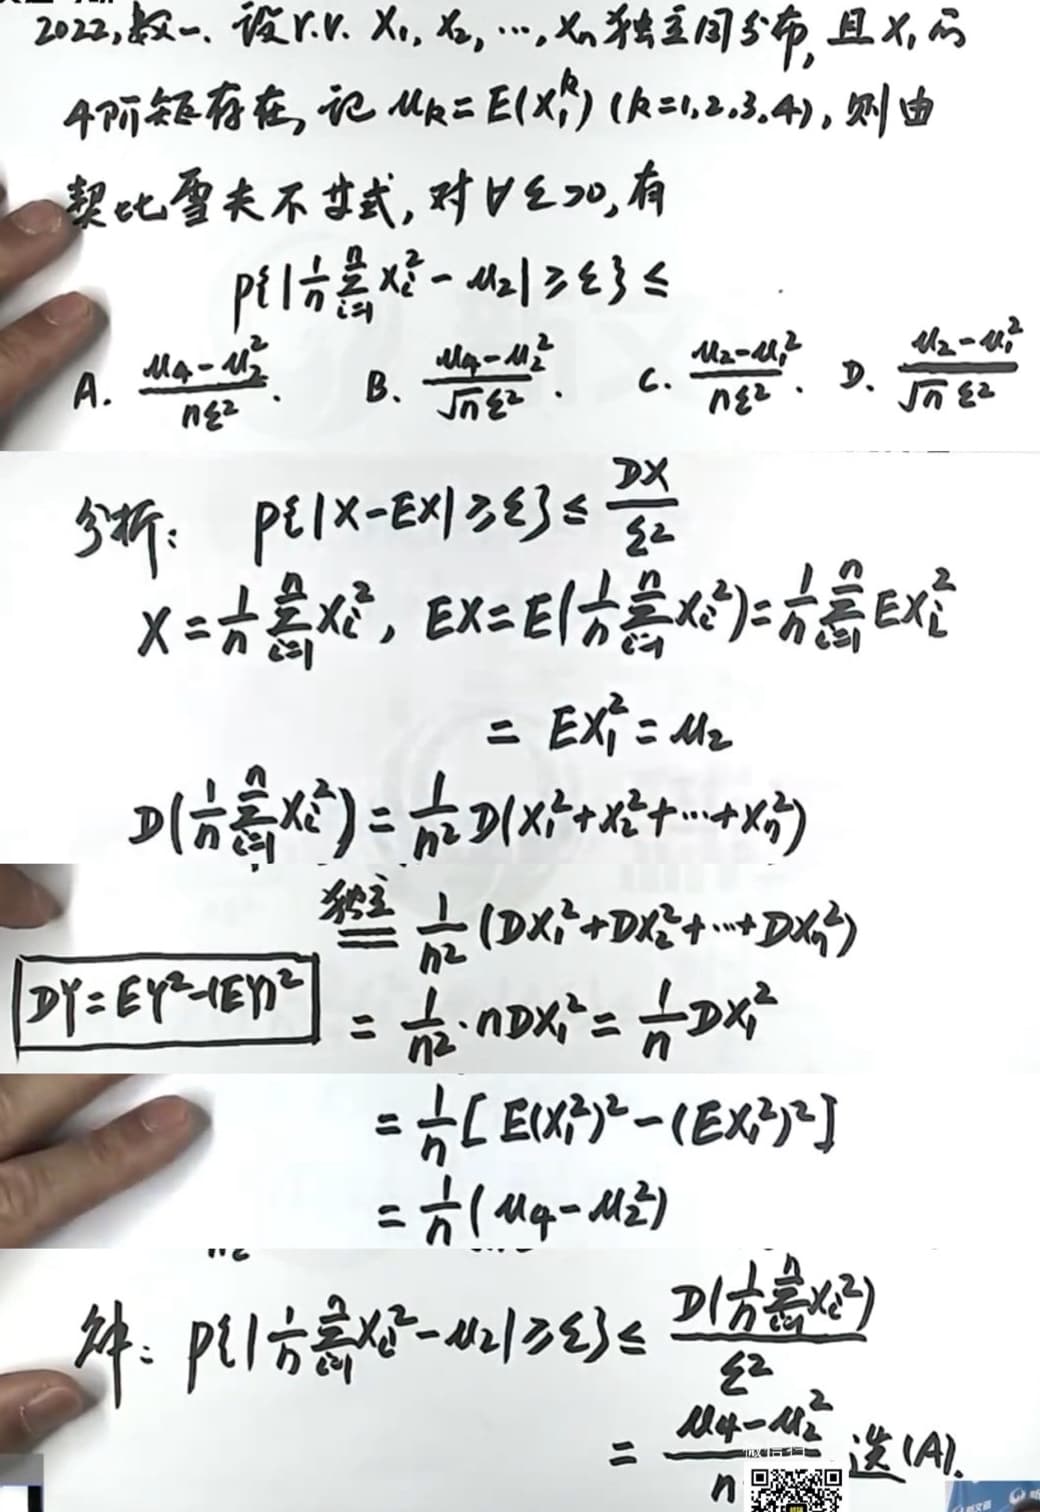 2022,数一、设r.v. X₁, X₂, …, Xₙ独立同分布, 且X₁的
4阶矩存在, 记 μₖ = E(X₁ᵏ) (k=1,2,3,4), 则由
契比雪夫不等式, 对∀ε>0, 有
P{|1/n ∑ᵢ₌₁ⁿ Xᵢ² - μ₂| ≥ ε} ≤
A. (μ₄-μ₂²)/(nε²). B. (μ₄-μ₂²)/(√n ε²). C. (μ₂-μ₁²)/(nε²). D. (μ₂-μ₁²)/(√n ε²)
分析: P{|X-EX| ≥ ε} ≤ DX/ε²
X = 1/n ∑ᵢ₌₁ⁿ Xᵢ², EX = E(1/n ∑ᵢ₌₁ⁿ Xᵢ²) = 1/n ∑ᵢ₌₁ⁿ EXᵢ²
= EX₁² = μ₂
D(1/n ∑ᵢ₌₁ⁿ Xᵢ²) = 1/n² D(X₁²+X₂²+…+Xₙ²)
独立
= 1/n² (DX₁²+DX₂²+…+DXₙ²)
DY = EY²-(EY)²
= 1/n² · nDX₁² = 1/n DX₁²
= 1/n [E(X₁²)² - (EX₁²)²]
= 1/n (μ₄-μ₂²)
解: P{|1/n ∑ᵢ₌₁ⁿ Xᵢ² - μ₂| ≥ ε} ≤ D(1/n ∑ᵢ₌₁ⁿ Xᵢ²)/ε²
= (μ₄-μ₂²)/n 选(A).